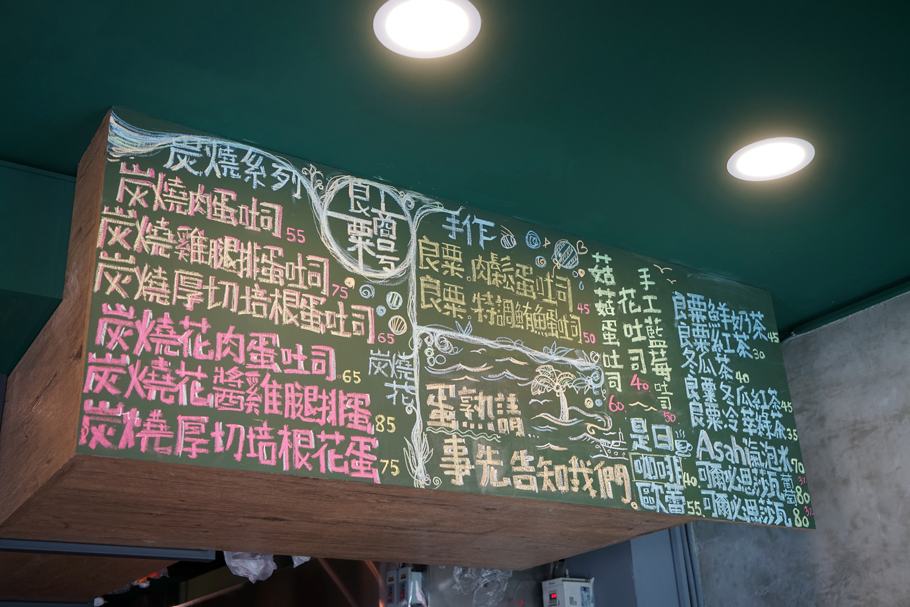 炭燒系列
炭燒肉蛋吐司 55
炭燒雞腿排蛋吐司 75
炭燒厚切培根蛋吐司 65
炭燒花肉蛋吐司 65
炭燒花醬雞腿排蛋 85
炭燒厚切培根花蛋 75
良粟商号
炭燒
花
手作
良粟肉鬆蛋吐司 45
良粟特調鮪魚蛋吐司 50
蛋熟請
事先告知我們
菇菇蛋吐司 60
花生吐司 40
手工藍莓 50
是日
咖啡 40
歐蕾 55
良粟鮮奶茶 45
良粟紅茶 30
冬瓜茶 40
良粟冬瓜紅茶 45
良粟冷萃綠茶 35
Ashi氣泡水 70
可爾必思沙瓦 80
可爾必思沙瓦 80